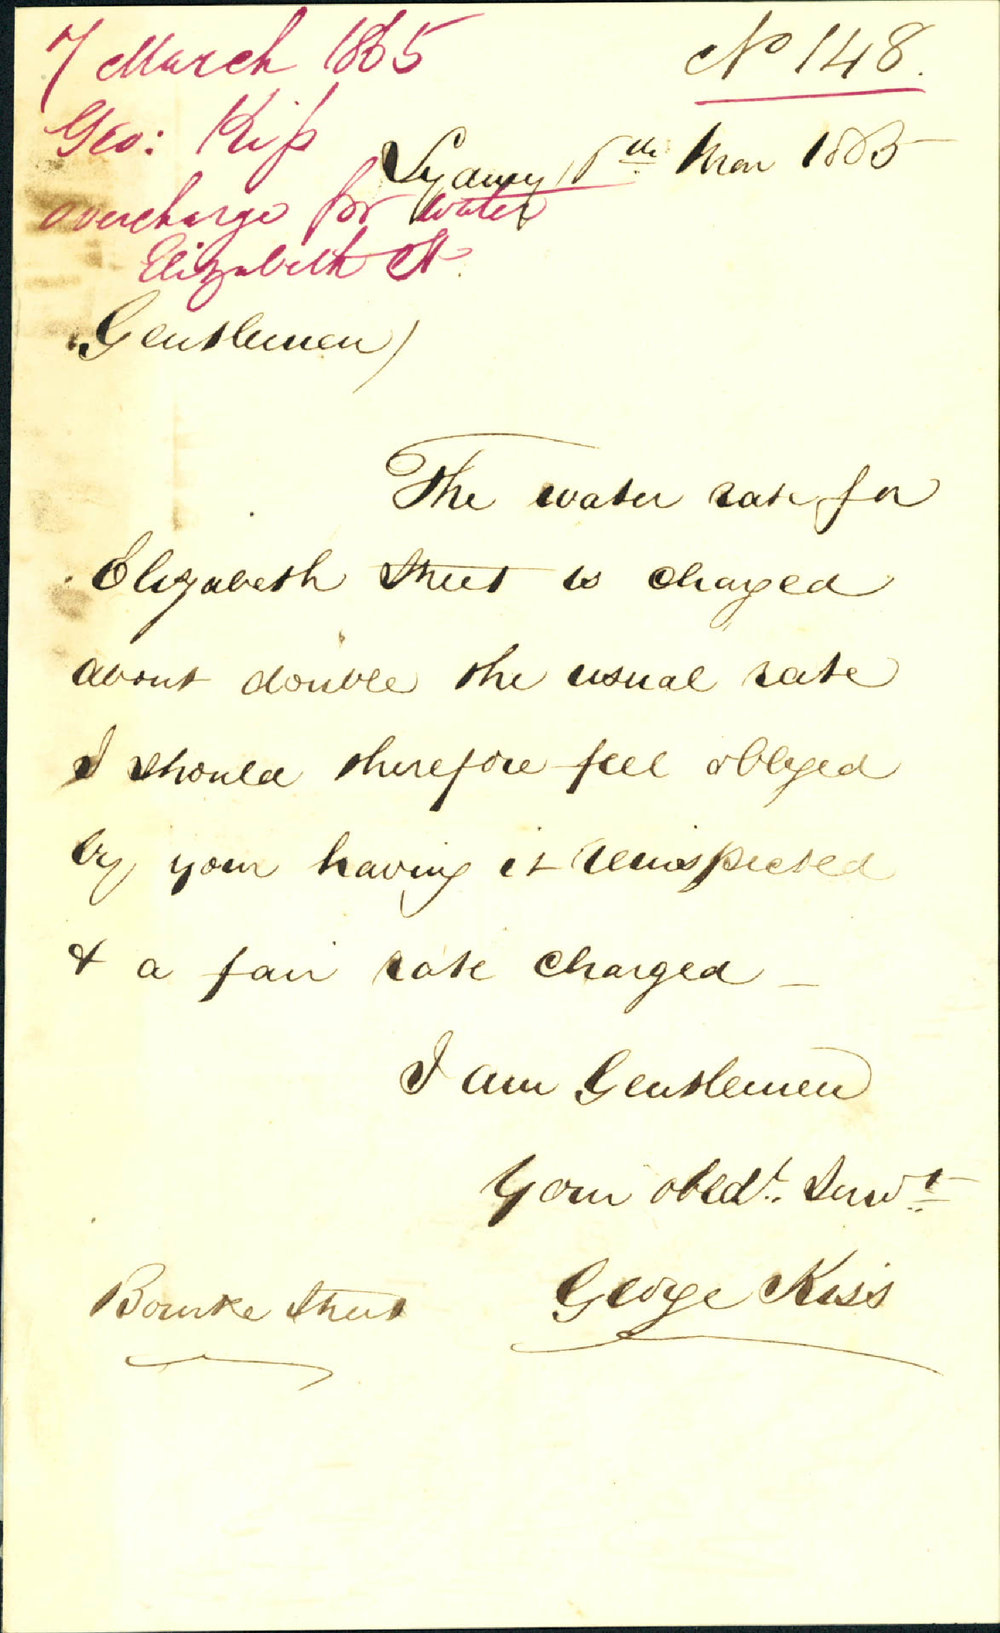 7 March 1865
No 148.
Geo: Kiſs
Sydney 6th Mar 1865
overcharge for water
Elizabeth St.
Gentlemen)
The water rate for
Elizabeth Street is charged
about double the usual rate
I should therefore feel obliged
by your having it reinspected
& a fair rate charged –
I am Gentlemen
Your obedt. Servt.
George Kiss
Bourke Street